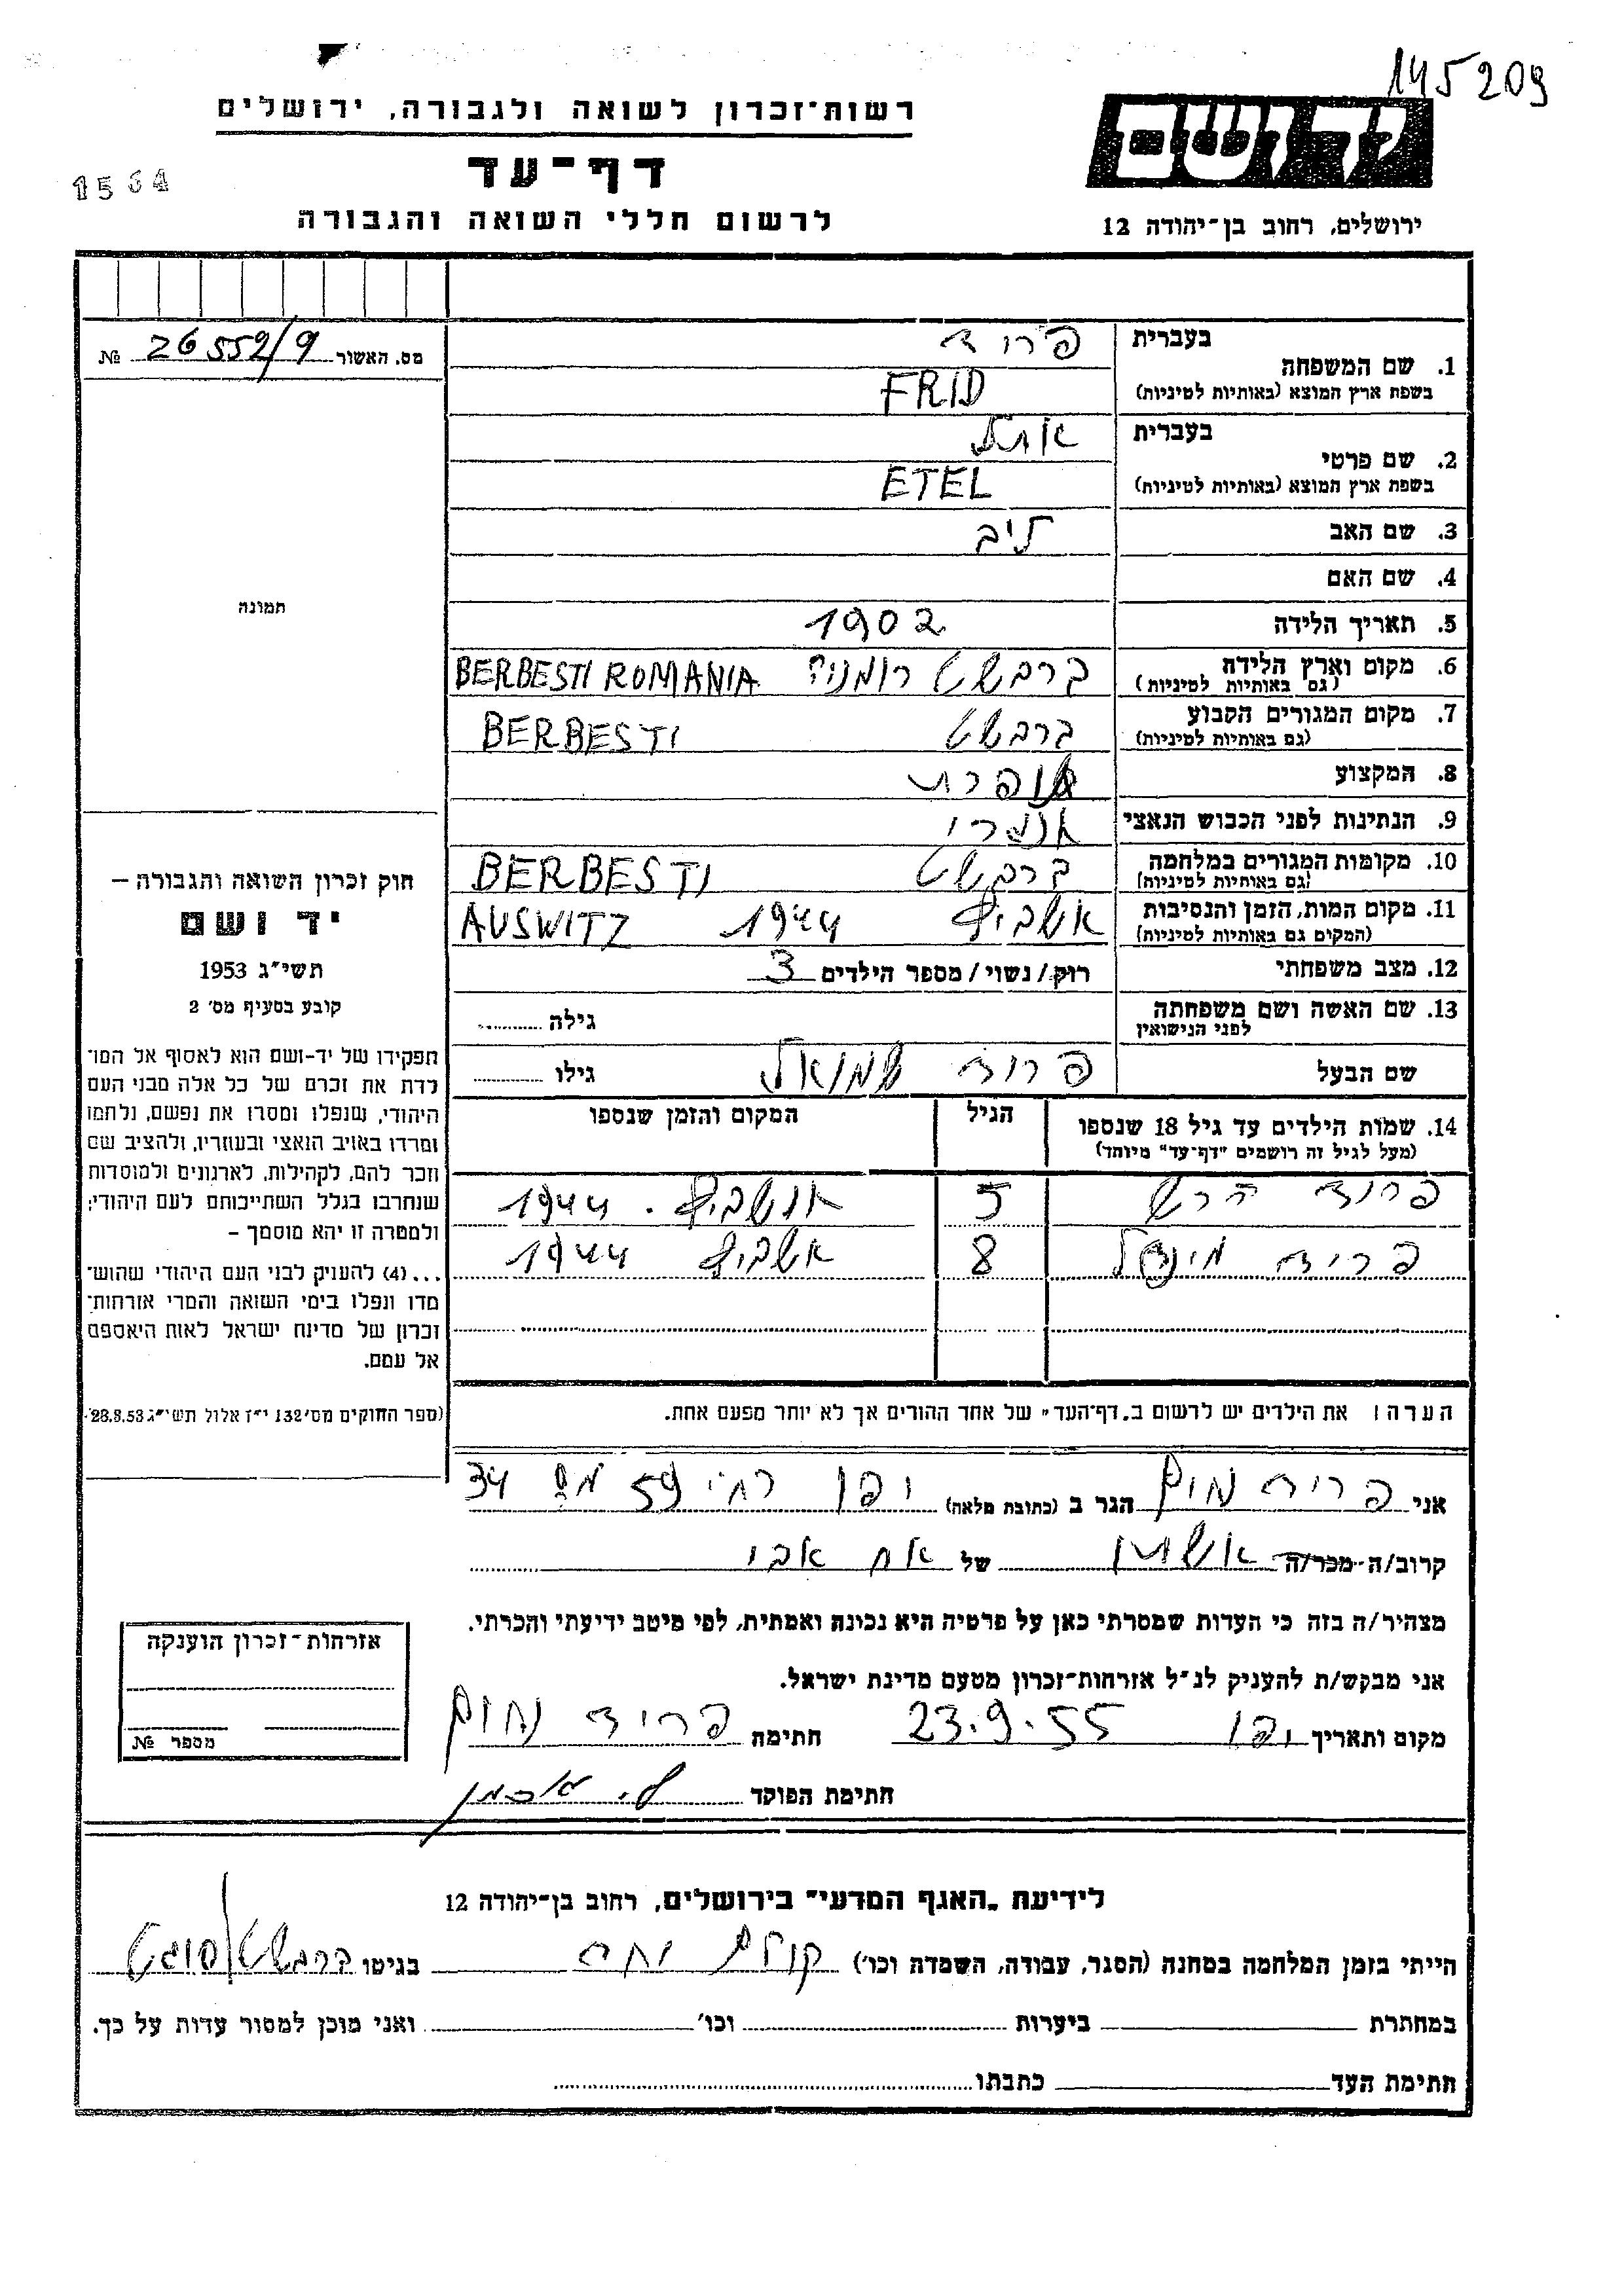 145209
רשות-זכרון לשואה ולגבורה, ירושלים
יד ושם
דף-עד
1564
לרשום חללי השואה והגבורה
ירושלים, רחוב בן-יהודה 12
מס. האשור 26552/9 №
בעברית פריד
1. שם המשפחה
בשפת ארץ המוצא (באותיות לטיניות) FRID
בעברית אתל
2. שם פרטי
בשפת ארץ המוצא (באותיות לטיניות) ETEL
3. שם האב ליב
4. שם האם
5. תאריך הלידה 1902
6. מקום וארץ הלידה ברבשט רומניה BERBESTI ROMANIA
(גם באותיות לטיניות)
7. מקום המגורים הקבוע ברבשט BERBESTI
(גם באותיות לטיניות)
8. המקצוע
9. הנתינות לפני הכבוש הנאצי
10. מקומות המגורים במלחמה ברבשט BERBESTI
(גם באותיות לטיניות)
11. מקום המות, הזמן והנסיבות אשביץ 1944 AUSWITZ
(המקום גם באותיות לטיניות)
12. מצב משפחתי רוק/נשוי/מספר הילדים 3
13. שם האשה ושם משפחתה גילה
לפני הנישואין
שם הבעל פריד שמואל גילו
14. שמות הילדים עד גיל 18 שנספו הגיל המקום והזמן שנספו
(מעל לגיל זה רושמים "דף-עד" מיוחד)
פריד הרש 5 אושביץ. 1944
פריד מינדל 8 אשביץ 1944
הערה: את הילדים יש לרשום ב„דף-העד" של אחד ההורים אך לא יותר מפעם אחת.
תמונה
חוק זכרון השואה והגבורה –
יד ושם
תשי"ג 1953
קובע בסעיף מס' 2
תפקידו של יד-ושם הוא לאסוף אל המו־
לדת את זכרם של כל אלה מבני העם
היהודי, שנפלו ומסרו את נפשם, נלחמו
ומרדו באויב הנאצי ובעוזריו, ולהציב שם
וזכר להם, לקהילות, לארגונים ולמוסדות
שנחרבו בגלל השתייכותם לעם היהודי;
ולמטרה זו יהא מוסמך –
...(4) להעניק לבני העם היהודי שהוש־
מדו ונפלו בימי השואה והמרי אזרחות־
זכרון של מדינת ישראל לאות היאספם
אל עמם.
(ספר החוקים מס' 132 י"ז אלול תשי"ג 28.8.53)
אני פריד נחום הגר ב (כתובת מלאה) יפו רח' 59 מס 34
קרוב/ה מכר/ה אשתו של אח אבי
מצהיר/ה בזה כי העדות שמסרתי כאן על פרטיה היא נכונה ואמתית, לפי מיטב ידיעתי והכרתי.
אני מבקש/ת להעניק לנ"ל אזרחות-זכרון מטעם מדינת ישראל.
מקום ותאריך יפו 23.9.55 חתימה פריד נחום
חתימת הפוקד
אזרחות-זכרון הוענקה
מספר №
לידיעת „האגף המדעי" בירושלים, רחוב בן-יהודה 12
הייתי בזמן המלחמה במחנה (הסגר, עבודה, השמדה וכו') בגיטו ברבשט/סיגט
במחתרת ביערות וכו' ואני מוכן למסור עדות על כך.
חתימת העד כתבתו